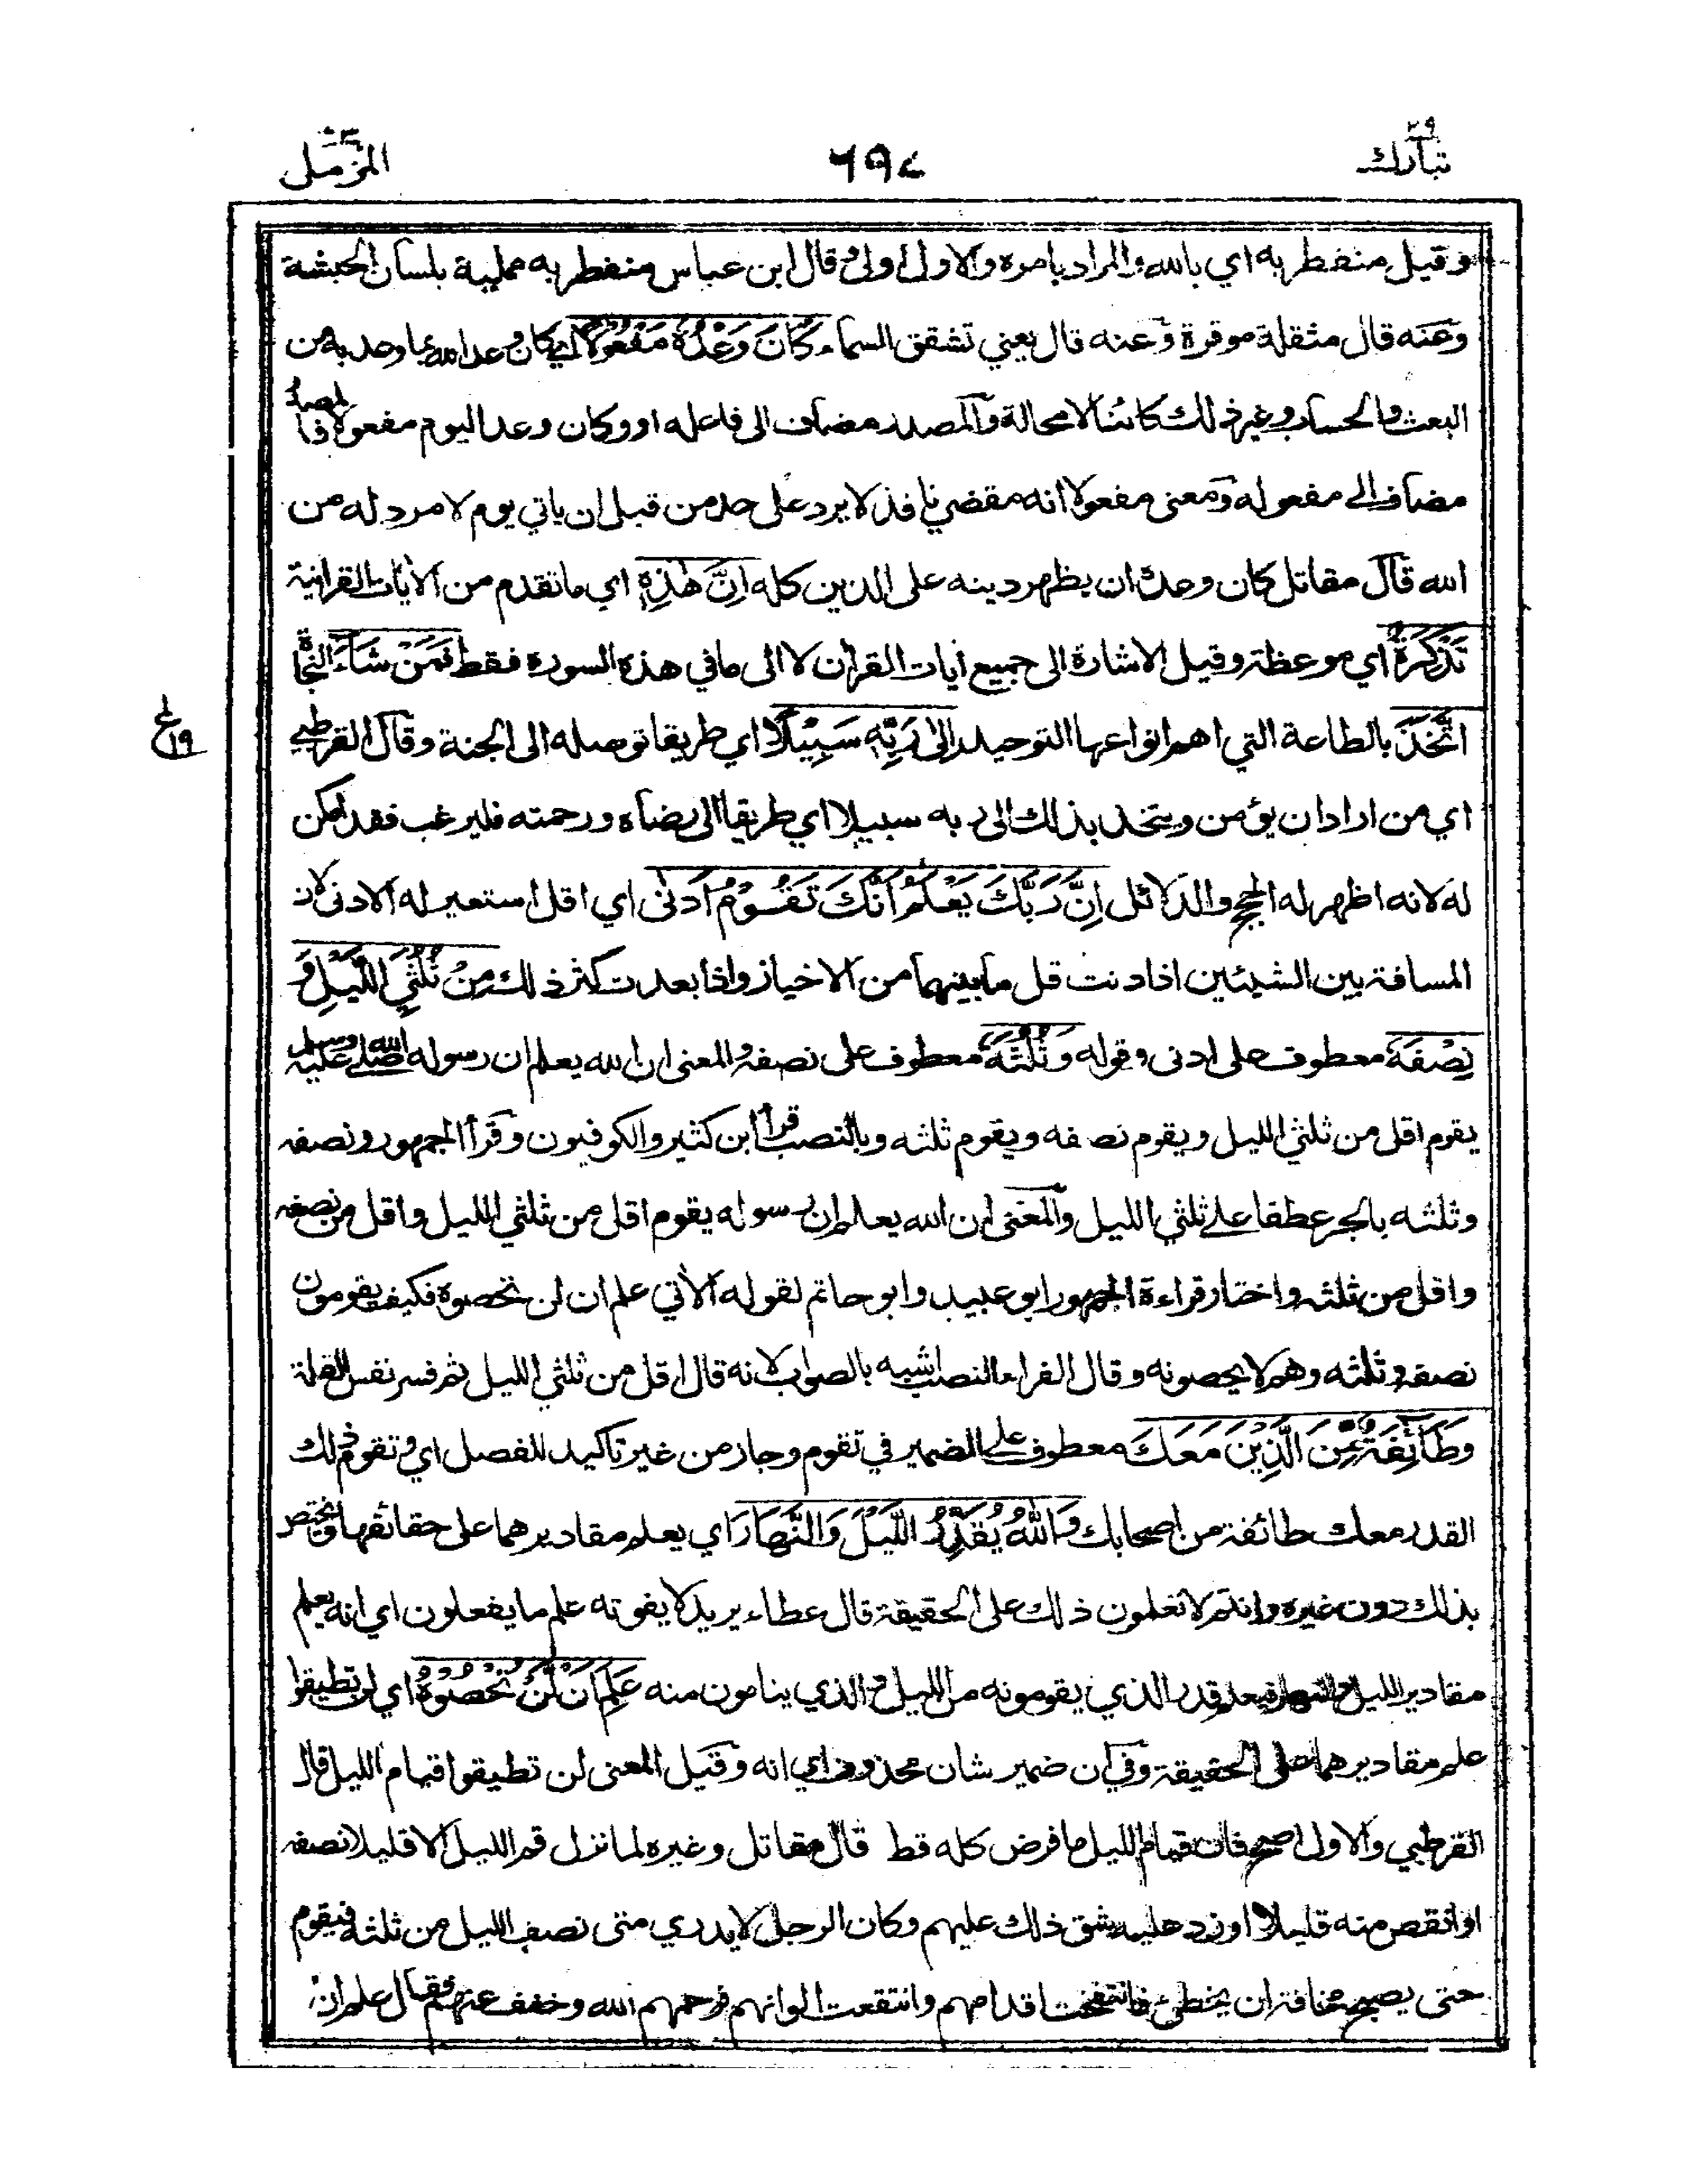 تبارك ٢٩
٦٩٨
المزمل ٧٣
وقيل منفطر به اي بالله والمراد بامره والاول اولى وقال ابن عباس منفطر به ممتلية بلسان الحبشة
وعنه قال مثقلة موقرة وعنه قال يعني تشقق السماء كَانَ وَعْدُهُ مَفْعُوْلًا اي كان وعد الله بما وعد به من
البعث والحساب وغير ذلك كائنا لا محالة والمصدر مضاف الى فاعله او وكان وعد اليوم مفعولا فالمصدر
مضاف الى مفعوله ومعنى مفعولا انه مقضي نافذ لا يرد على حد من قبل ان ياتي يوم لا مرد له من
الله قال مقاتل كان وعده ان يظهر دينه على الدين كله اِنَّ هٰذِهٖ اي ما تقدم من الأيات القرانية
تَذْكِرَةٌ اي موعظة وقيل الاشارة الى جميع أيات القرأن لا الى ما في هذه السورة فقط فَمَنْ شَاءَ النجاة
اتَّخَذَ بالطاعة التي اهم انواعها التوحيد اِلٰى رَبِّهٖ سَبِيْلًا اي طريقا توصله الى الجنة وقال القرطبي
ع ١٩
اي من اراد ان يؤمن ويتخذ بذلك الى ربه سبيلا اي طريقا الى رضاه ورحمته فليرغب فقد امكن
له لانه اظهر له الحجج والدلائل اِنَّ رَبَّكَ يَعْلَمُ اَنَّكَ تَقُوْمُ اَدْنٰى اي اقل استعير له الادنى لان
المسافة بين الشيئين اذا دنت قل ما بينهما من الاحياز واذا بعدت كثر ذلك مِنْ ثُلُثَيِ اللَّيْلِ وَ
نِصْفَهٗ معطوف على ادنى وقوله وَثُلُثَهٗ معطوف على نصفه والمعنى ان الله يعلم ان رسوله صلى الله عليه وسلم
يقوم اقل من ثلثي الليل ويقوم نصفه ويقوم ثلثه وبالنصب قرأ ابن كثير والكوفيون وقرأ الجمهور ونصفه
وثلثه بالجر عطفا على ثلثي الليل والمعنى ان الله يعلم ان رسوله يقوم اقل من ثلثي الليل واقل من نصفه
واقل من ثلثه واختار قراءة الجمهور ابو عبيد وابو حاتم لقوله الأتي علم ان لن تحصوه فكيف يقومون
نصفه وثلثه وهم لا يحصونه وقال الفراء النصب اشبه بالصواب لانه قال اقل من ثلثي الليل ثم فسر نفس القلة
وَطَائِفَةٌ مِّنَ الَّذِيْنَ مَعَكَ معطوف على الضمير في تقوم وجاز من غير تاكيد للفصل اي وتقوم ذلك
القدر معك طائفة من اصحابك وَاللّٰهُ يُقَدِّرُ اللَّيْلَ وَالنَّهَارَ اي يعلم مقاديرهما على حقائقها ويختص
بذلك دون غيره وانتم لا تعلمون ذلك على الحقيقة قال عطاء يريد لا يفوته علم ما يفعلون اي انه يعلم
مقادير الليل والنهار فيعلم قدر الذي يقومونه من الليل والذي ينامون منه عَلِمَ اَنْ لَّنْ تُحْصُوْهُ اي لن تطيقوا
علم مقاديرهما على الحقيقة وفي ان ضمير شان محذوف اي انه وقيل المعنى لن تطيقوا قيام الليل قال
القرطبي والاول اصح فان قيام الليل ما فرض كله قط قال مقاتل وغيره لما نزل قم الليل الا قليلا نصفه
او انقص منه قليلا او زد عليه شق ذلك عليهم وكان الرجل لا يدري متى نصف الليل من ثلثه فيقوم
حتى يصبح مخافة ان يخطئ فانتفخت اقدامهم وانتقعت الوانهم فرحمهم الله وخفف عنهم فقال علم ان